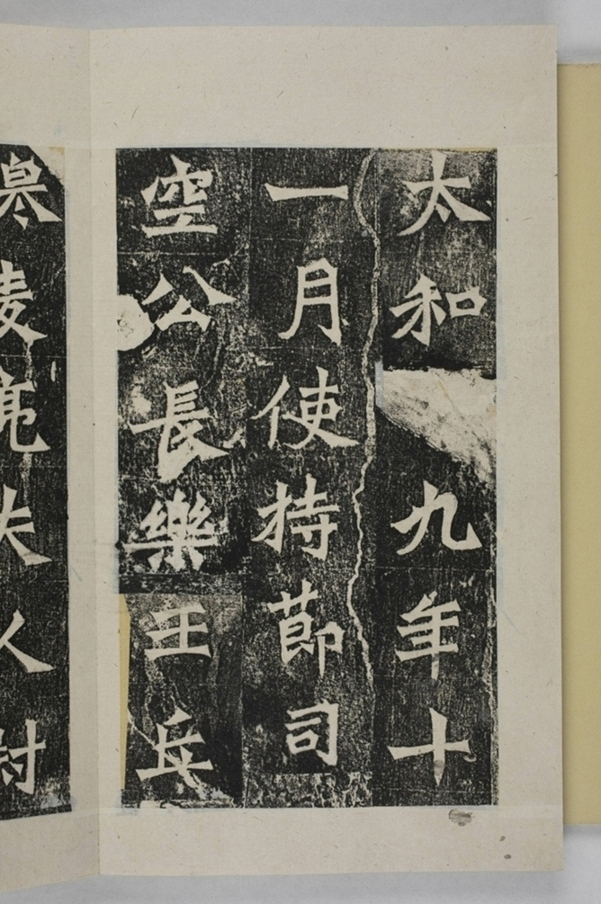 太和九年十
一月使持節司
空公長樂王丘
亮夫人